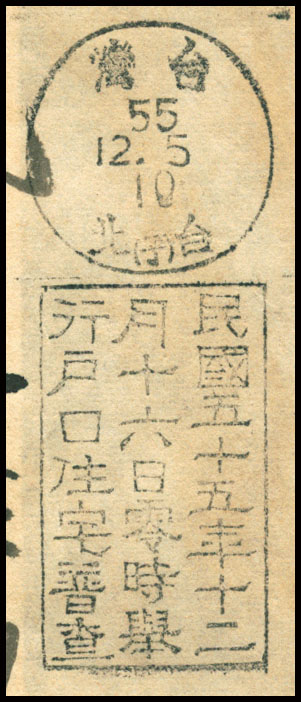 台灣
55
12. 5
10
台北
民國五十五年十二
月十六日零時舉
行戶口住宅普查